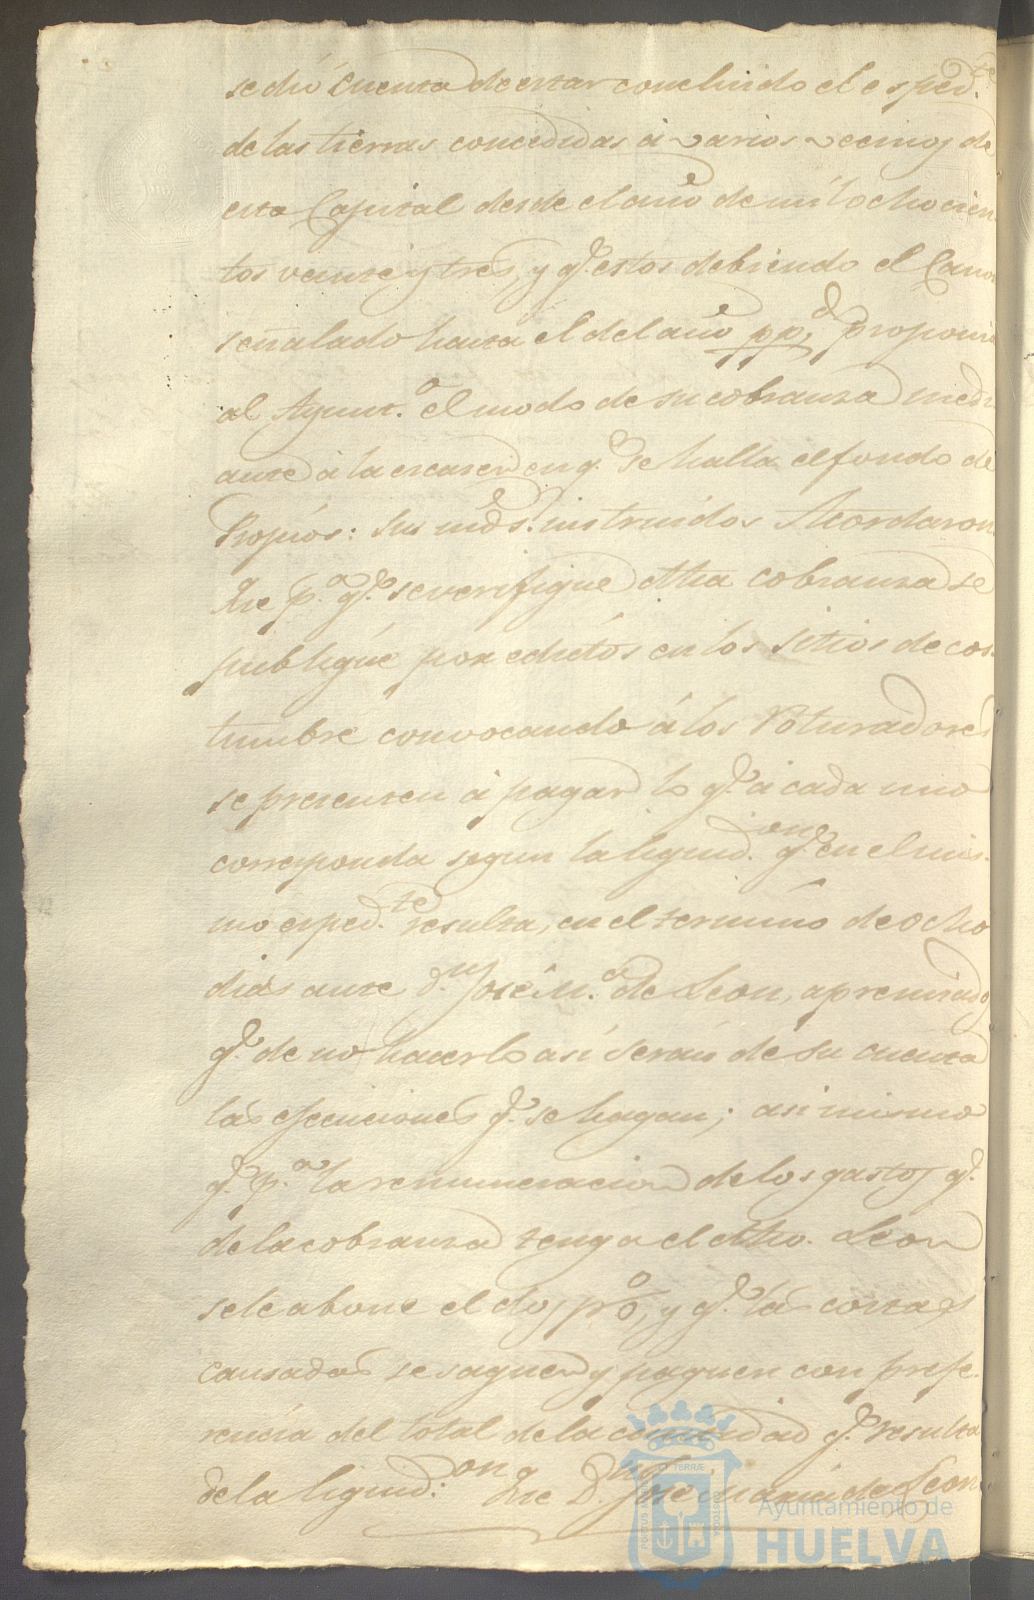 se dió Cuenta de estar concluido el esped.te
de las tierras concedidas á varios vecinos de
esta Capital desde el año de mil ochocien
tos veinte y tres, y q.e estos debiendo el Canon
señalado hasta el del año pp.do proponia
al Ayunt.o el modo de su cobranza medi
ante á la escasez en q.e se halla el fondo de
Propios: Sus mds. instruidos Acordaron
Que p.a q.e se verifique dha cobranza se
publique por edictos en los sitios de cos
tumbre convocando á los Roturadores
se presenten á pagar lo q.e á cada uno
corresponda segun la liquid.on q.e en el mis
mo esped.te resulta, en el termino de ocho
dias ante d.n José M.a de Leon, apremiado
q.e de no hacerlo asi serán de su cuenta
las ejecuciones q.e se hagan; asi mismo
q.e p.a la remuneracion de los gastos q.e
de la cobranza tenga el dho. Leon
se le abone el dos p%, y q.e las costas
causadas se saquen y paguen con prefe
rencia del total de la cantidad q.e resulta
de la liquid.on Que D.n José Maria de Leon
Ayuntamiento de
HUELVA